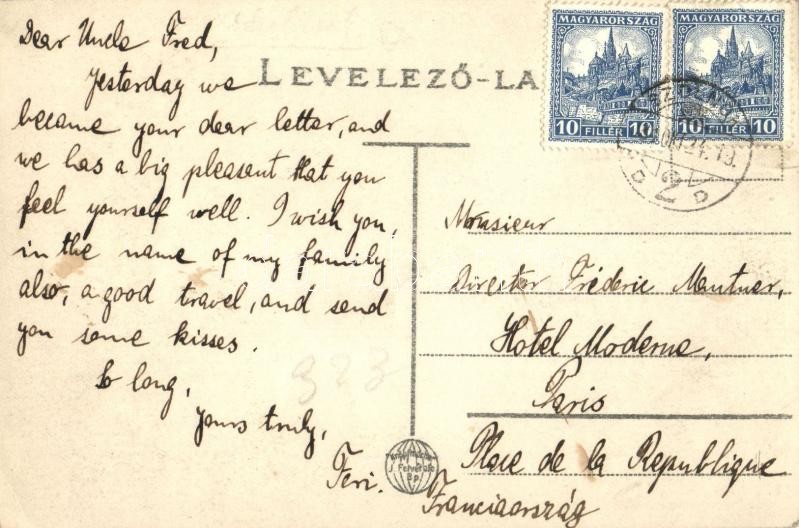 Dear Uncle Fred,
Yesterday we
became your dear letter, and
we has a big pleasent that you
feel yourself well. I wish you,
in the name of my family
also, a good travel, and send
you some kisses.
So long,
Yours truly,
Feri.
LEVELEZŐ-LA
MAGYARORSZÁG
10 FILLÉR 10
MAGYARORSZÁG
10 FILLÉR 10
Monsieur
Director Fréderic Mautner,
Hotel Moderne,
Paris
Place de la Republique
Franciaország
323